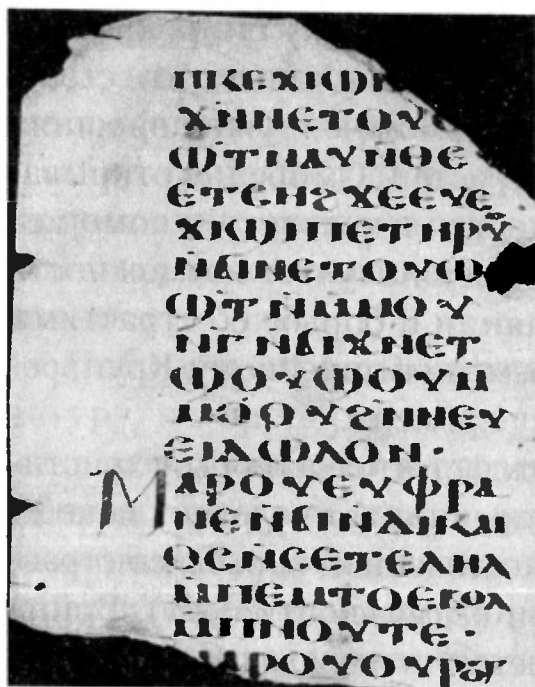 ⲡⲕⲉϫⲓϣⲛ
ϫⲛⲛⲉⲧⲟⲩⲱ
ϣⲧⲛⲁⲩⲛⲑⲉ
ⲉⲧⲥⲏϩϫⲉⲉⲩⲉ
ϫⲓϣⲓⲡⲉⲧⲏⲣⲟⲩ
ⲛϭⲓⲛⲉⲧⲟⲩⲱ
ϣⲧⲛⲁⲙⲟⲩ
ⲛⲅⲛϭⲓϫⲛⲉⲧ
ϣⲟⲩϣⲟⲩⲙ
ⲙⲟⲟⲩϩⲛⲛⲉⲩ
ⲉⲓⲇⲱⲗⲟⲛ·
ⲙⲁⲣⲟⲩⲉⲩⲫⲣⲁ
ⲛⲉⲛϭⲓⲛⲇⲓⲕⲁⲓ
ⲟⲥⲛⲥⲉⲧⲉⲗⲏⲗ
ⲙⲡⲉⲙⲧⲟⲉⲃⲟⲗ
ⲙⲡⲛⲟⲩⲧⲉ·
ⲙⲁⲣⲟⲩⲟⲩⲣⲟⲧ